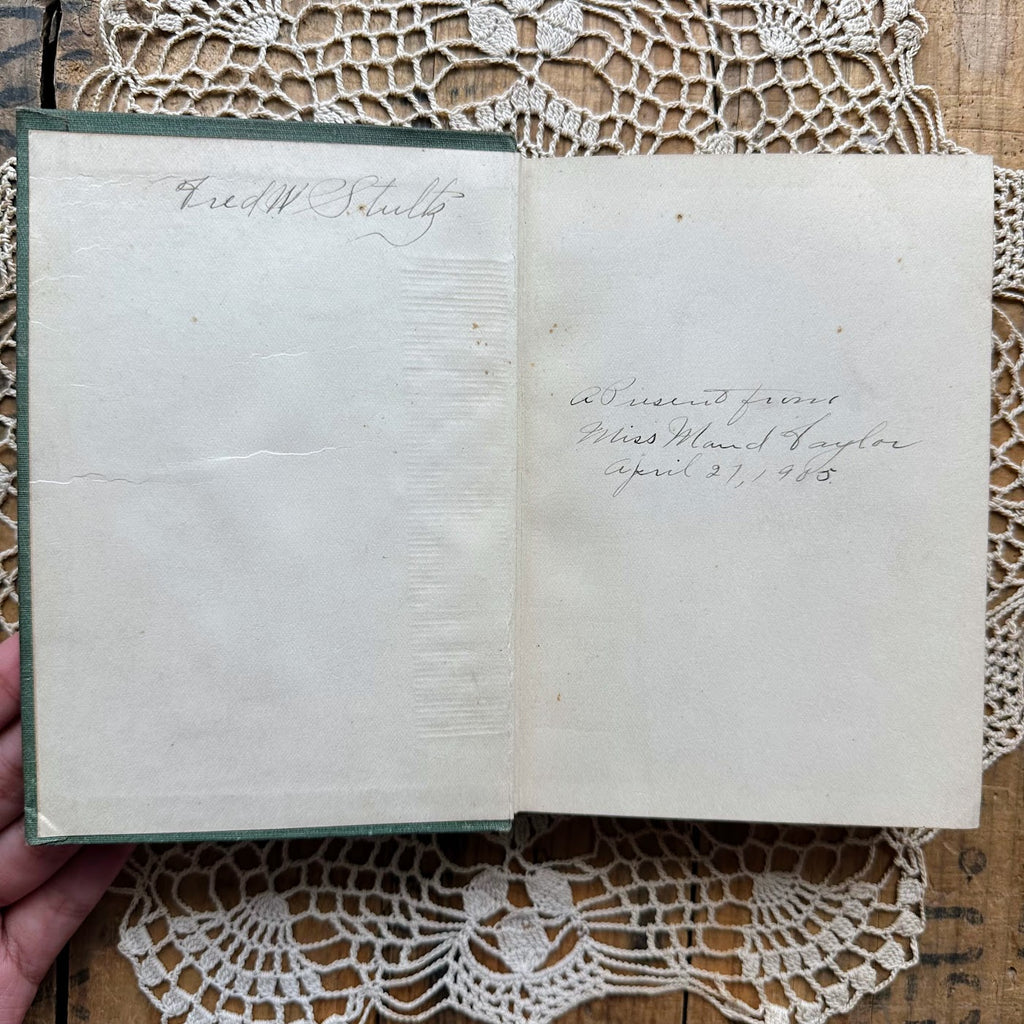 Fred W Stultz
A Present from
Miss Maud Taylor
April 27, 1905.